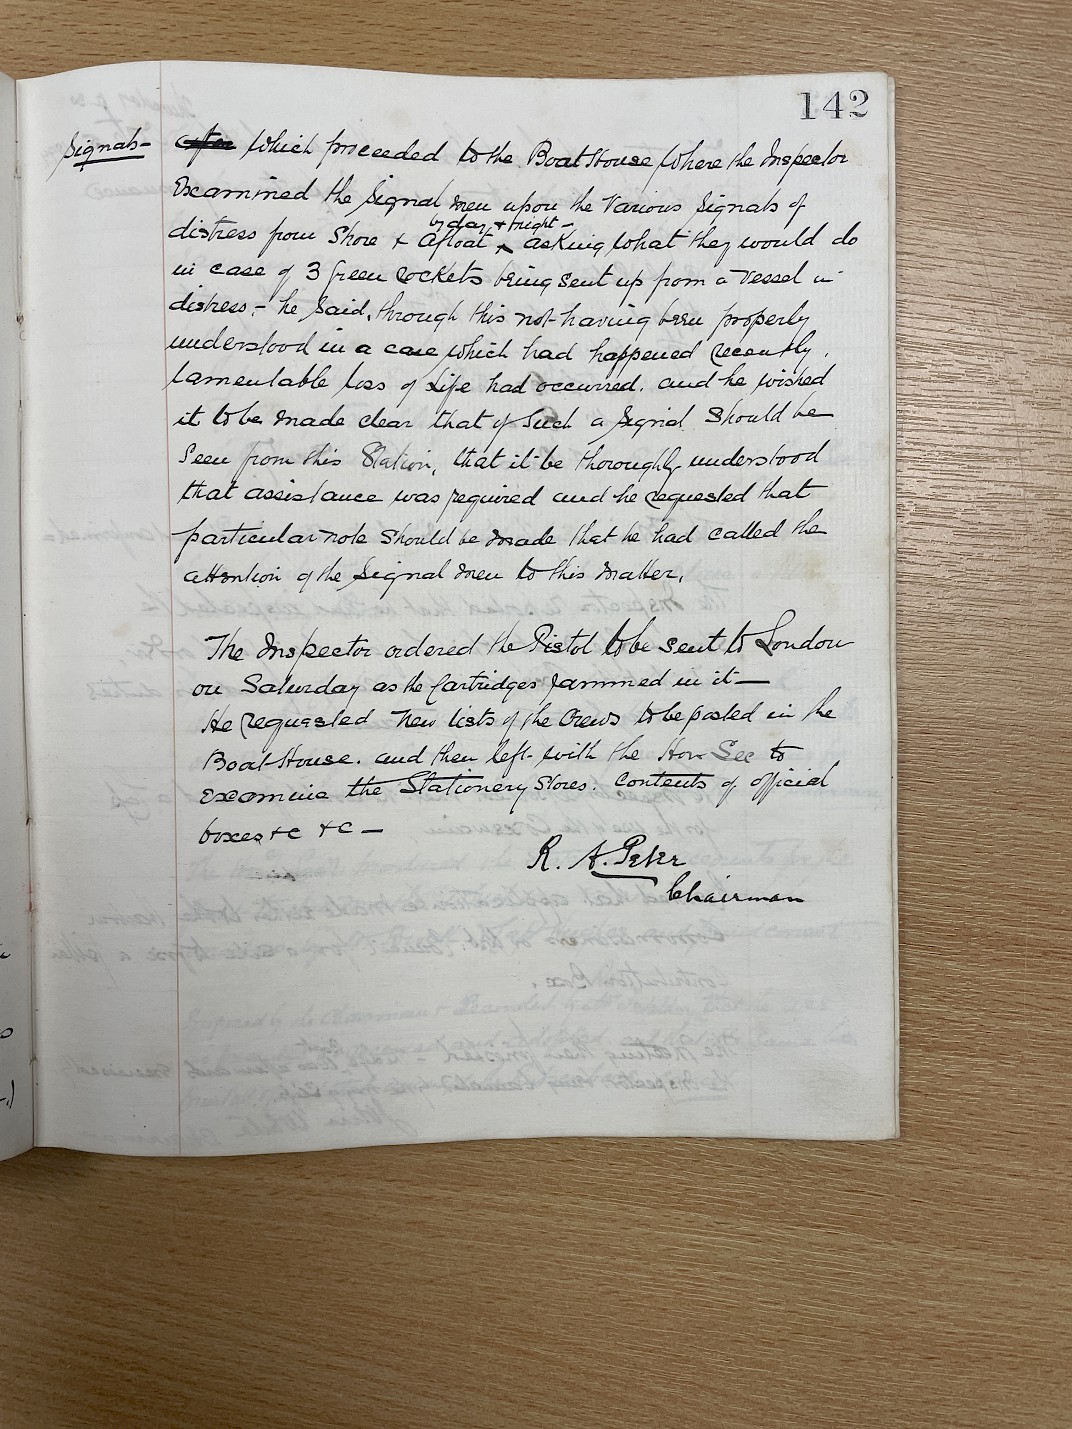 142
Signals— after which proceeded to the Boat House where the Inspector
Examined the Signal men upon the Various Signals of
by day & night —
distress from Shore & Afloat ^ asking what they would do
in case of 3 Green rockets being sent up from a Vessel in
distress, - he said, through this not having been properly
understood in a case which had happened recently,
lamentable loss of Life had occurred. and he wished
it to be made clear that if Such a Signal Should be
Seen from this Station, that it be thoroughly understood
that assistance was required and he requested that
particular note Should be made that he had called the
attention of the Signal men to this matter.
The Inspector ordered the Pistol to be sent to London
on Saturday as the Cartridges jammed in it—
He requested new lists of the Crews to be posted in the
Boat-House. and then left with the Hon Sec to
examine the Stationery Stores. Contents of official
boxes &c &c —
R. A. Peter
Chairman